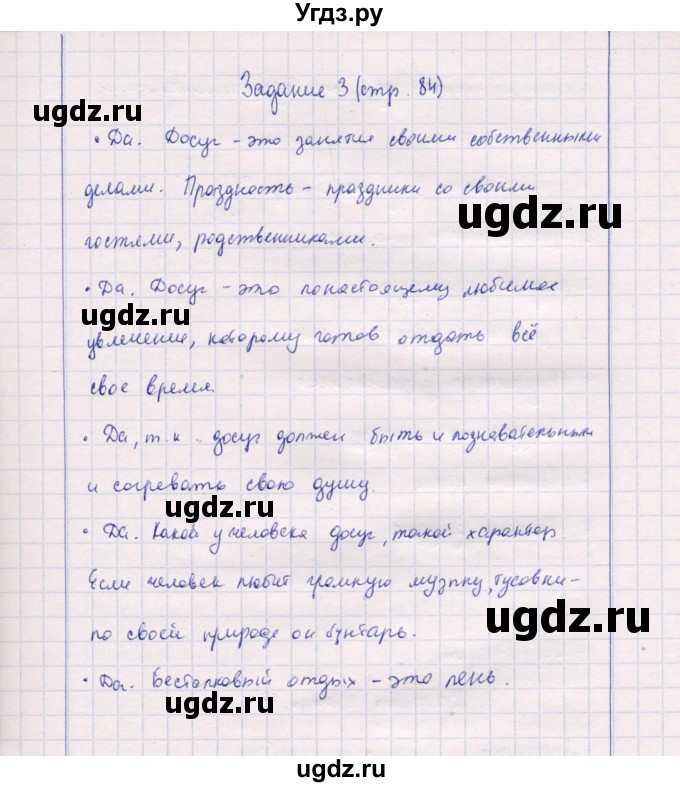 Угдз.ру
Задание 3 (стр. 84)
ugdz.ru
• Да. Досуг - это занятия своими собственными
делами. Праздность - праздники со своими
ugdz.ru
гостями, родственниками.
• Да. Досуг - это понастоящему любимое
ugdz.ru
увлечение, которому готов отдать всё
свое время.
• Да, т.к. досуг должен быть и познавательным
и согревать свою душу.
ugdz.ru
• Да. Какой у человека досуг, такой характер.
Если человек любит громкую музыку, тусовки -
ugdz.ru
по своей природе он бунтарь.
• Да. Бестолковый отдых - это лень.
ugdz.ru
ugdz.ru